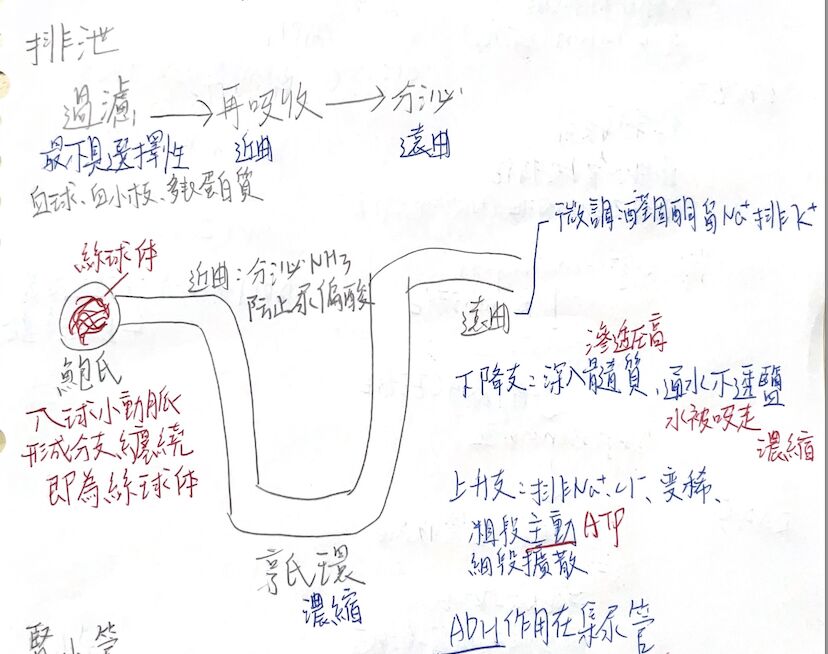 排泄
過濾 → 再吸收 → 分泌
最不具選擇性 近曲 遠曲
血球、血小板、多數蛋白質
微調:醛固酮留Na⁺排K⁺
絲球体
近曲:分泌NH3
防止尿偏酸
遠曲
鮑氏
滲透压高
下降支:深入髓質、通水不透鹽
水被吸走
濃縮
入球小動脈
形成分支纏繞
即為絲球体
上升支:排Na⁺、Cl⁻、变稀、
粗段主動 ATP
細段擴散
亨氏環
濃縮
ADH作用在集尿管
腎小管